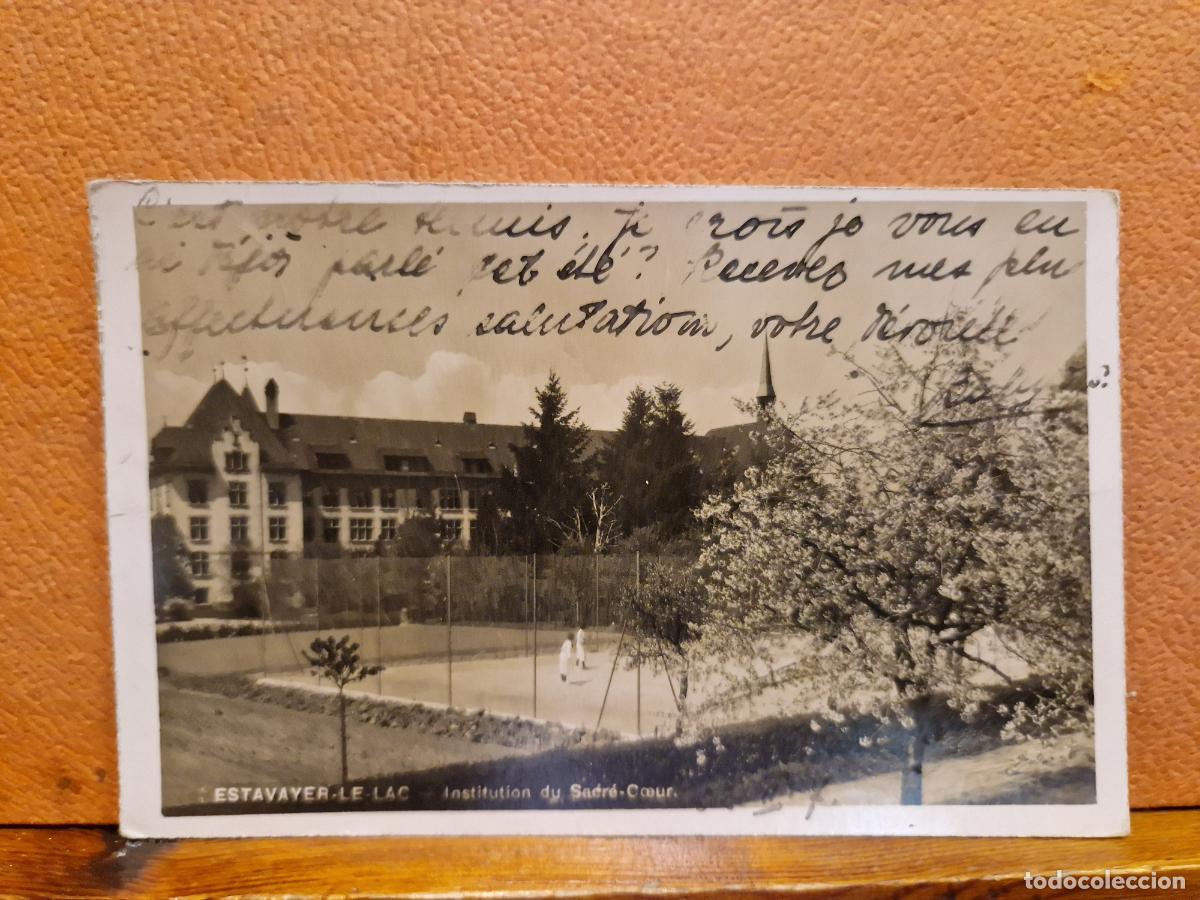 C'est notre tennis, je crois je vous en
ai déjà parlé cet été? Recevez mes plu
affectueuses salutation, votre dévouée
ESTAVAYER-LE-LAC Institution du Sacré-Cœur.
todocoleccion